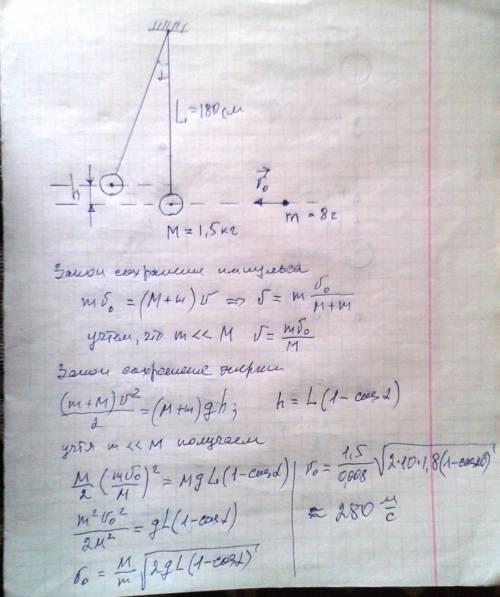 α
L = 180 см
h
v⃗₀
m = 8г
M = 1,5 кг
Закон сохранения импульса
mv₀ = (M+m)v ⇒ v = m v₀/(M+m)
учтем, что m << M v = mv₀/M
Закон сохранения энергии
(m+M)v²/2 = (M+m)gh; h = L(1-cosα)
учтя m << M получаем
M/2 (mv₀/M)² = MgL(1-cosα)
m²v₀²/2M² = gL(1-cosα)
v₀ = M/m √2gL(1-cosα)
v₀ = 1,5/0,008 √2·10·1,8(1-cos20°)
≈ 280 м/с